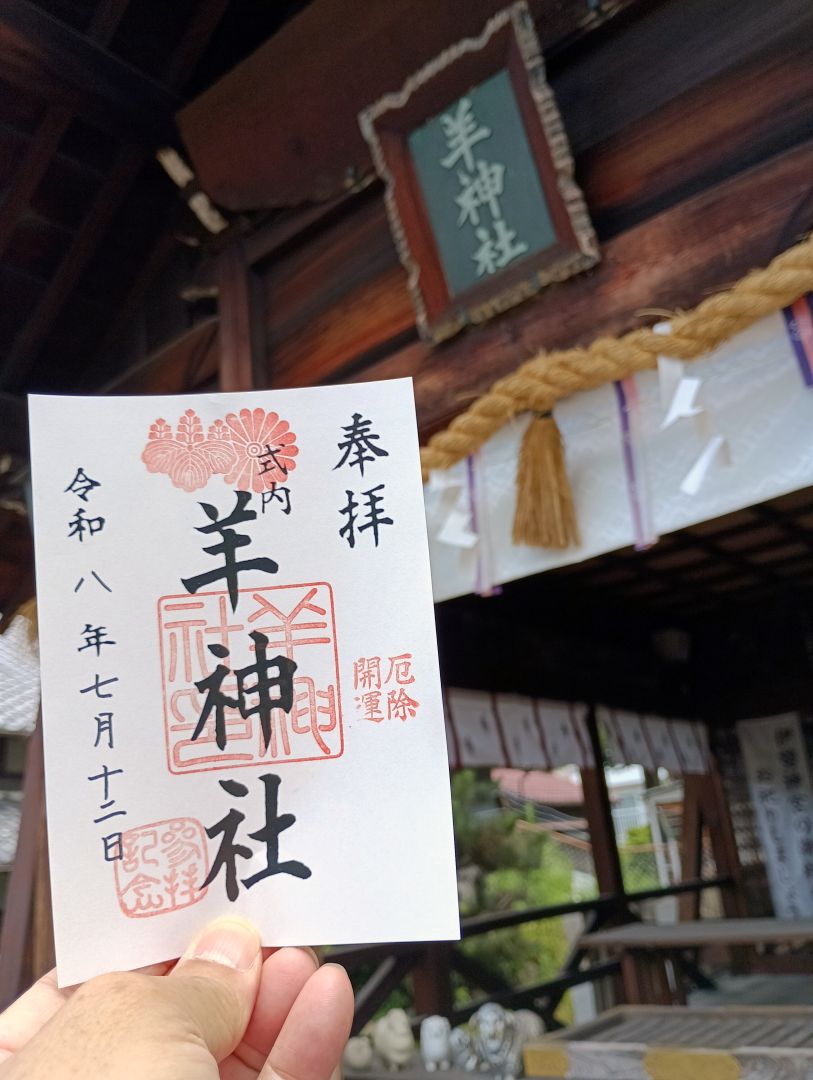 羊神社
奉拝
厄除
開運
式内
羊神社
羊神社印
参拝
記念
令和八年七月十二日